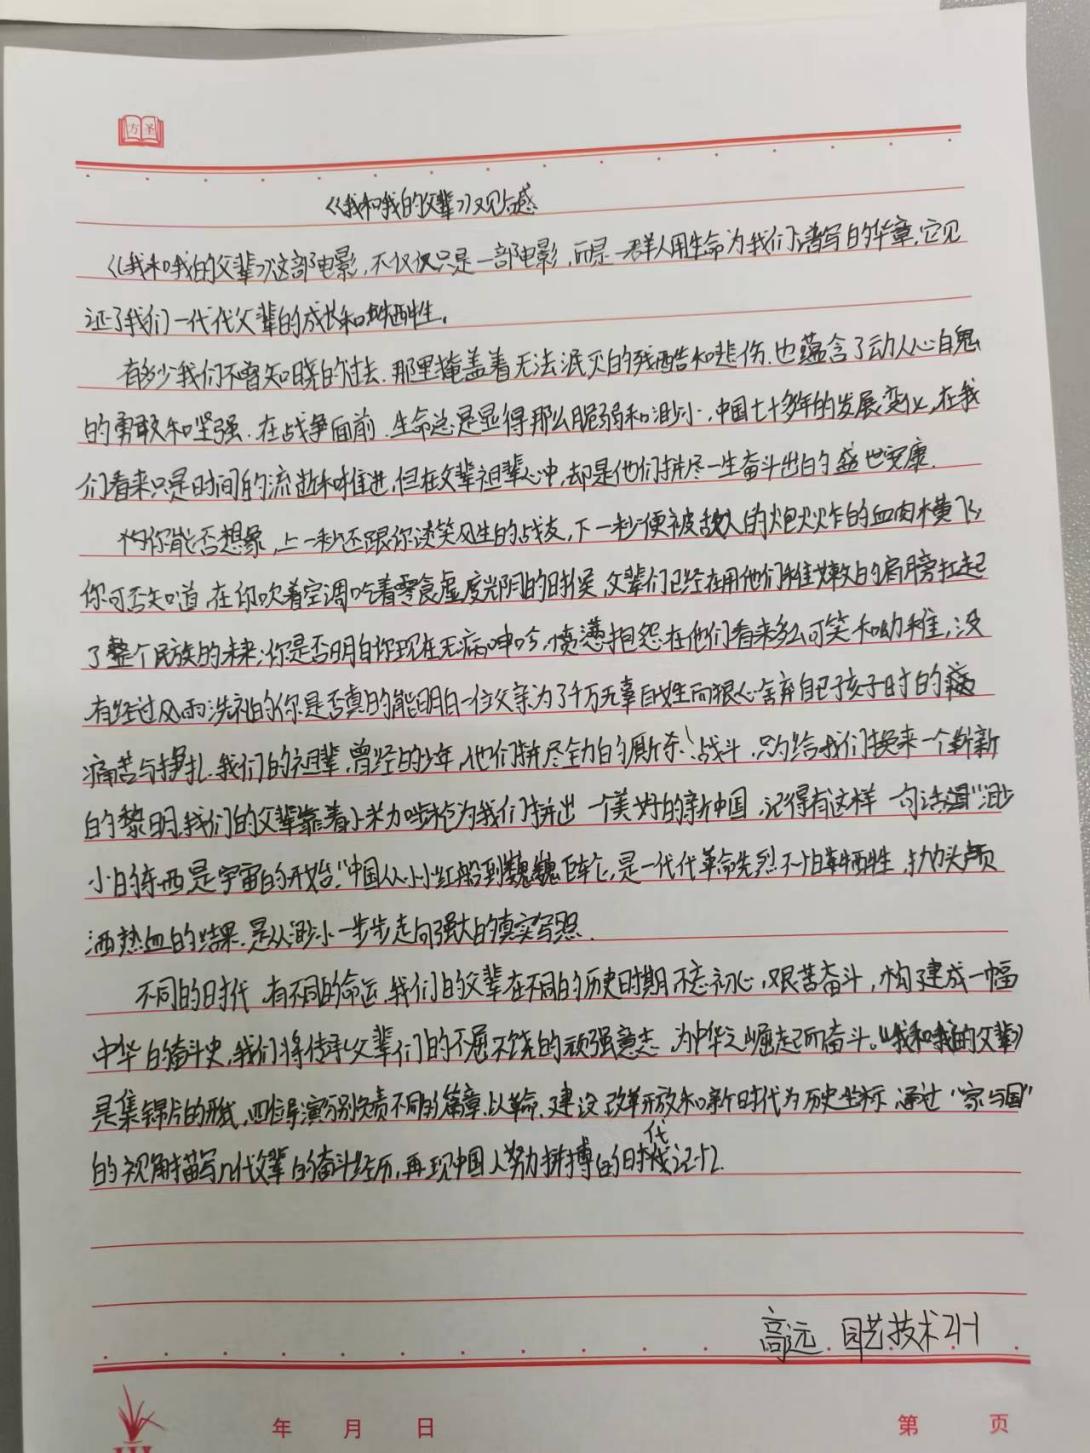 方圣
《我和我的父辈》观后感
《我和我的父辈》这部电影，不仅仅只是一部电影，而是一群人用生命为我们谱写的华章，它见
证了我们一代代父辈的成长和牺牲。
有多少我们不曾知晓的过去，那里掩盖着无法泯灭的残酷和悲伤，也蕴含了动人心魄
的勇敢和坚强。在战争面前，生命总是显得那么脆弱和渺小，中国七十多年的发展变化，在我
们看来只是时间的流逝和推进，但在父辈祖辈心中，却是他们拼尽一生奋斗出的盛世安康。
你能否想象，上一秒还跟你谈笑风生的战友，下一秒便被敌人的炮火炸的血肉横飞
你可否知道，在你吹着空调吃着零食虚度光阴的时候，父辈们已经在用他们稚嫩的肩膀扛起
了整个民族的未来；你是否明白你现在无病呻吟，愤懑抱怨在他们看来多么可笑和幼稚，没
有经过风雨洗礼的你是否真的能明白一位父亲为了千万无辜百姓而狠心舍弃自己孩子时的
痛苦与挣扎。我们的祖辈，曾经的少年，他们拼尽全力的厮杀、战斗，只为给我们换来一个崭新
的黎明，我们的父辈靠着小米加步枪为我们拼出一个美好的新中国，记得有这样一句话“渺
小的东西是宇宙的开始。”中国从小小红船到巍巍巨轮，是一代代革命先烈不怕牺牲，抛头颅
洒热血的结果，是从渺小一步步走向强大的真实写照。
不同的时代，有不同的命运，我们的父辈在不同的历史时期不忘初心，艰苦奋斗，构建成一幅
中华的奋斗史，我们将传承父辈们的不屈不饶的顽强意志，为中华之崛起而奋斗。《我和我的父辈》
是集锦片的形式，四位导演分别负责不同的篇章，以革命、建设、改革开放和新时代为历史坐标，通过“家与国”
的视角描写几代父辈的奋斗经历，再现中国人努力拼搏的时代记忆。
高远 园艺技术21-1
年 月 日
第 页